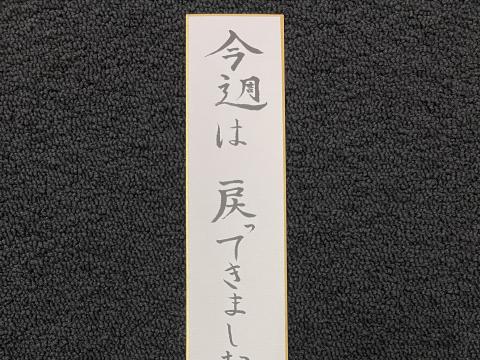 今週は 戻ってきまし